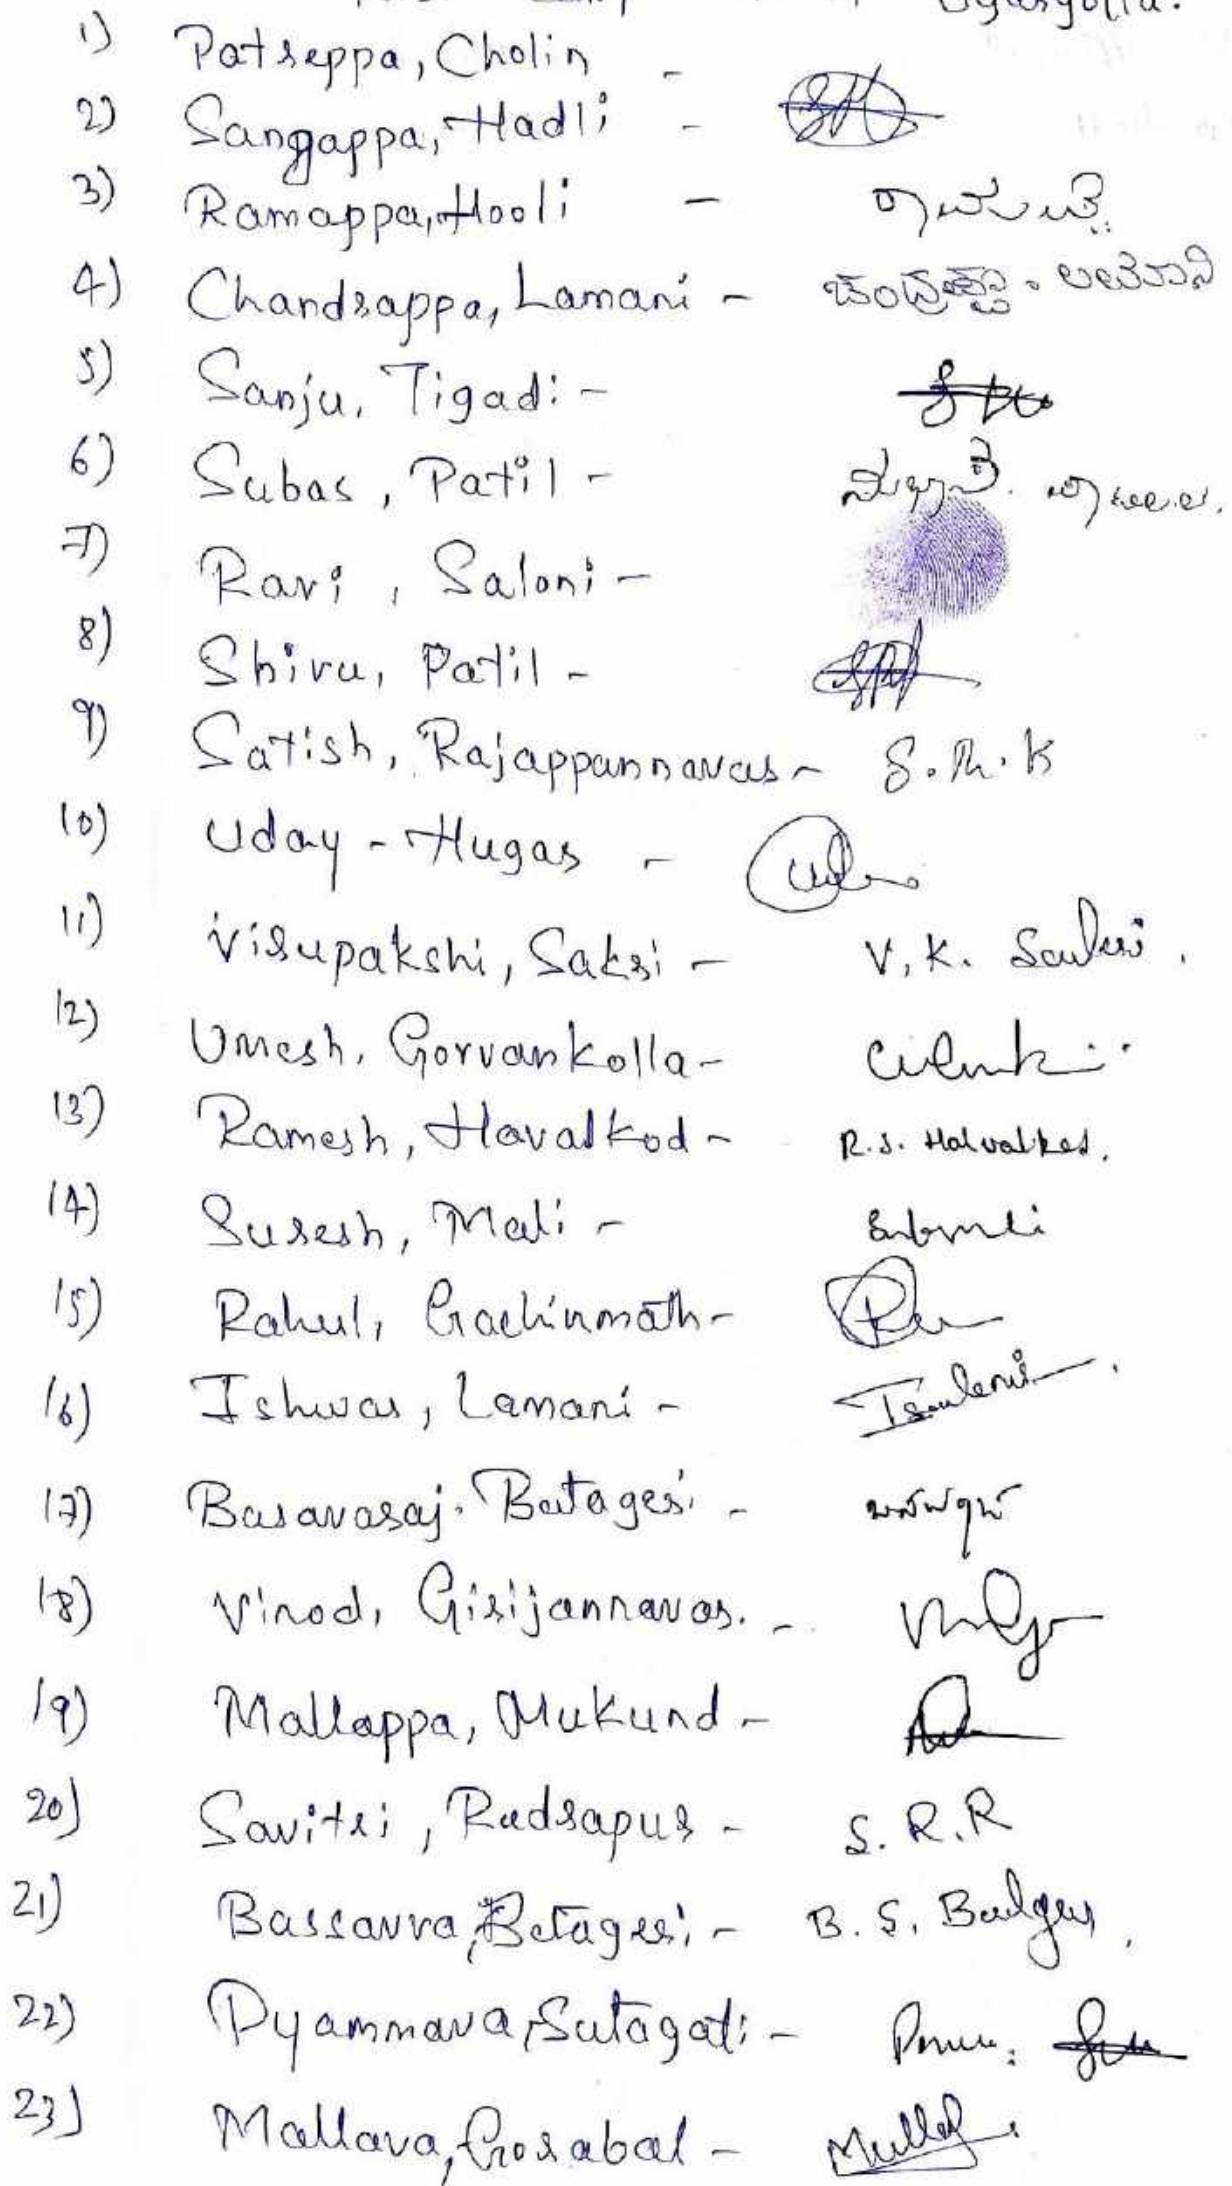 1) Patreppa, Cholin -
2) Sangappa, Hadli -
3) Ramappa, Hooli - ರಾಮಪ್ಪ
4) Chandrappa, Lamani - ಚಂದ್ರಪ್ಪಾ. ಲಮಾನಿ
5) Sanju, Tigadi -
6) Subas, Patil - ಸುಭಾಸ.
7) Ravi, Saloni -
8) Shivu, Patil -
9) Satish, Rajappannavar - S.R.K
10) Uday - Hugar -
11) Virupakshi, Sakri - V.K. Sakri.
12) Umesh, Gorvankolla -
13) Ramesh, Havalkod - R.S. Halvalked.
14) Suresh, Mali -
15) Rahul, Gachinmath -
16) Ishwar, Lamani -
17) Basavaraj. Batageri - ಬಸವರಾಜ
18) Vinod, Girijannavar. -
19) Mallappa, Mukund -
20) Savitri, Rudrapur - S.R.R
21) Bassavva, Betageri - B.S.
22) Dyammava, Sutagati -
23) Mallava, Gorabal -